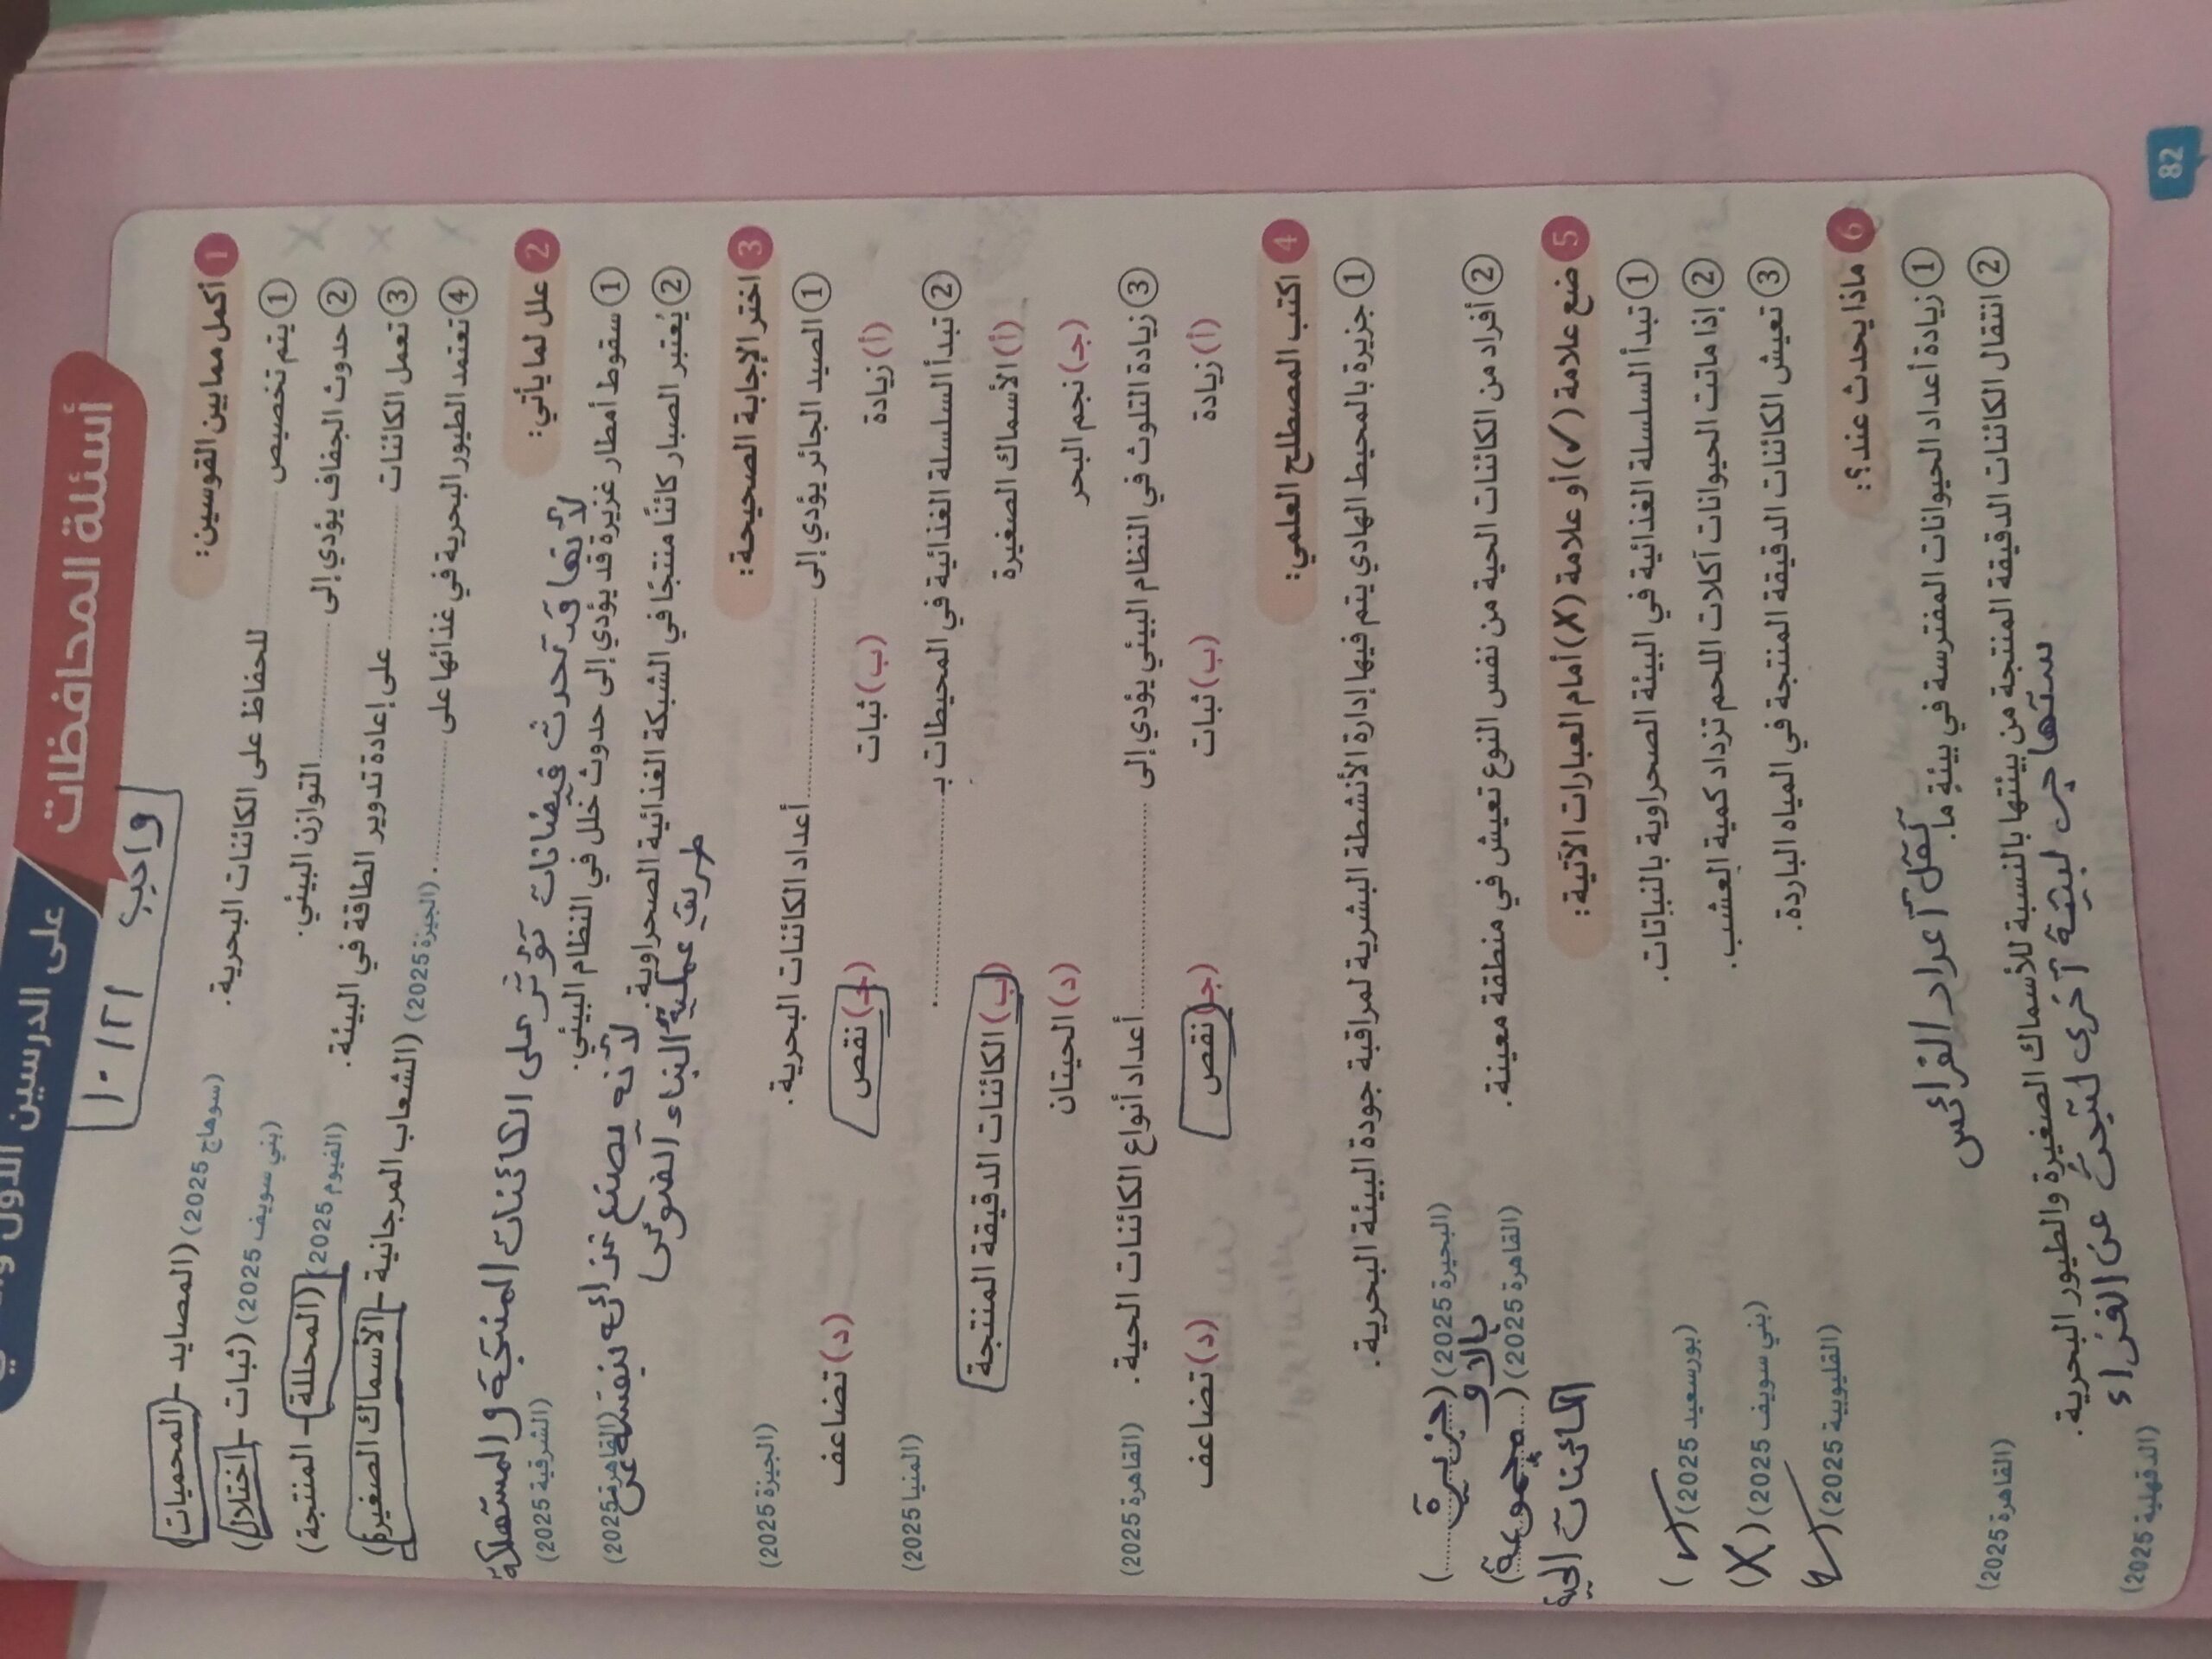 أسئلة المحافظات
على الدرسين الأول
واجب
١٠/٢١
1 أكمل مما بين القوسين:
① يتم تخصيص .......... للحفاظ على الكائنات البحرية. (المصايد - المحميات) (سوهاج 2025)
② حدوث الجفاف يؤدي إلى .......... التوازن البيئي. (ثبات - اختلال) (بني سويف 2025)
③ تعمل الكائنات .......... على إعادة تدوير الطاقة في البيئة. (المنتجة - المحللة) (الفيوم 2025)
④ تعتمد الطيور البحرية في غذائها على .......... . (الشعاب المرجانية - الأسماك الصغيرة) (الجيزة 2025)
2 علل لما يأتي:
لأنها قد تحدث فيضانات تؤثر على الكائنات المنتجة والمستهلكة
① سقوط أمطار غزيرة قد يؤدي إلى حدوث خلل في النظام البيئي. (الشرقية 2025)
② يُعتبر الصبار كائنًا منتجًا في الشبكة الغذائية الصحراوية. (القاهرة 2025)
لأنه يصنع غذائه بنفسه عن
طريق عملية البناء الضوئى
3 اختر الإجابة الصحيحة:
① الصيد الجائر يؤدي إلى .......... أعداد الكائنات البحرية. (الجيزة 2025)
(أ) زيادة (ب) ثبات (جـ) نقص (د) تضاعف
② تبدأ السلسلة الغذائية في المحيطات بـ .......... . (المنيا 2025)
(أ) الأسماك الصغيرة (ب) الكائنات الدقيقة المنتجة
(جـ) نجم البحر (د) الحيتان
③ زيادة التلوث في النظام البيئي يؤدي إلى .......... أعداد أنواع الكائنات الحية. (القاهرة 2025)
(أ) زيادة (ب) ثبات (جـ) نقص (د) تضاعف
4 اكتب المصطلح العلمي:
① جزيرة بالمحيط الهادي يتم فيها إدارة الأنشطة البشرية لمراقبة جودة البيئة البحرية.
(جزيرة بالاو) (البحيرة 2025)
② أفراد من الكائنات الحية من نفس النوع تعيش في منطقة معينة. (مجموعة) (القاهرة 2025)
الكائنات الحية
5 ضع علامة (✓) أو علامة (X) أمام العبارات الآتية:
① تبدأ السلسلة الغذائية في البيئة الصحراوية بالنباتات. (✓) (بورسعيد 2025)
② إذا ماتت الحيوانات آكلات اللحم تزداد كمية العشب. (X) (بني سويف 2025)
③ تعيش الكائنات الدقيقة المنتجة في المياه الباردة. (✓) (القليوبية 2025)
6 ماذا يحدث عند؟:
① زيادة أعداد الحيوانات المفترسة في بيئةٍ ما. (القاهرة 2025)
تقل أعداد الفرائس
② انتقال الكائنات الدقيقة المنتجة من بيئتها بالنسبة للأسماك الصغيرة والطيور البحرية. (الدقهلية 2025)
ستهاجر لبيئة أخرى لتبحث عن الغذاء
82